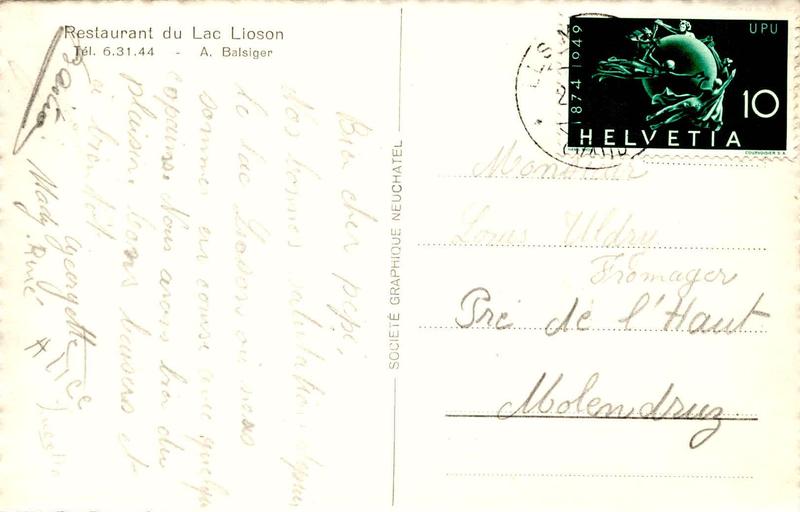 Restaurant du Lac Lioson
Tél. 6.31.44 - A. Balsiger
Bien cher pepi,
Nos bonnes salutations depuis
le lac Lioson où nous
sommes en course avec quelques
copains. Nous avons bien du
plaisir. bons baisers et
à bientôt.
Georgette
Mady
René
Alice
SOCIETÉ GRAPHIQUE NEUCHATEL
1874 1949
UPU
10
HELVETIA
COURVOISIER S.A.
Monsieur
Louis Uldry
Fromager
Pré de l'Haut
Molendruz